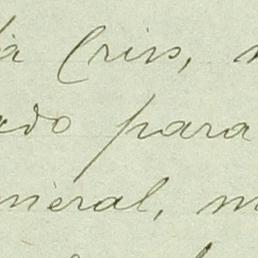 Cris,
ado para
neral, m